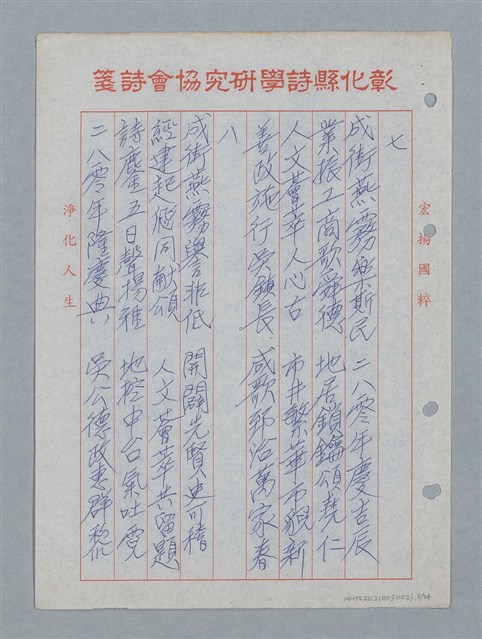 彰化縣詩學研究協會詩箋
宏揚國粹
七
成街燕霧樂斯民 二八零年慶吉辰
業振工商歌舜德 地居鎖鑰頌堯仁
人文薈萃人心古 市井繁華市貌新
善政施行吳鎮長 咸歌郅治萬家春
八
成街燕霧譽非低 開闢先賢史可稽
經建起同獻頌 人文薈萃共留題
詩鏖五日聲揚雅 地控中台氣吐霓
二八零年隆慶典 吳公德政惠群黎
淨化人生